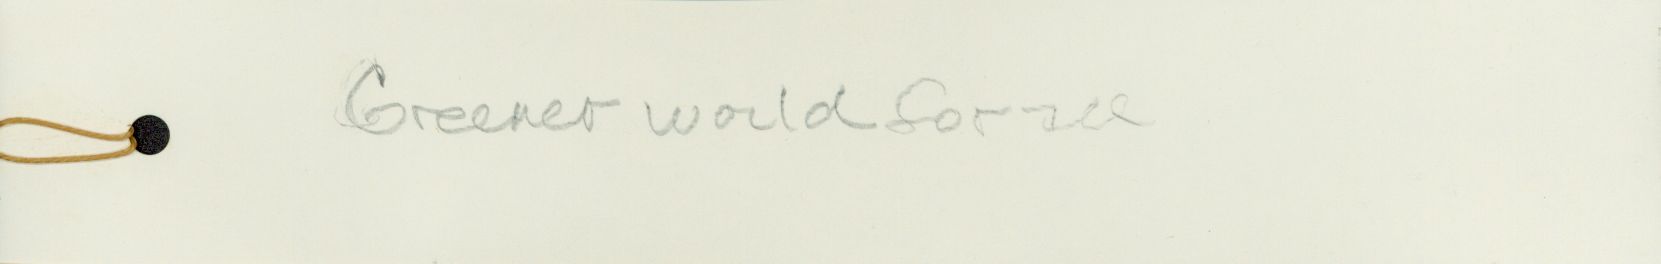 Greener world for all